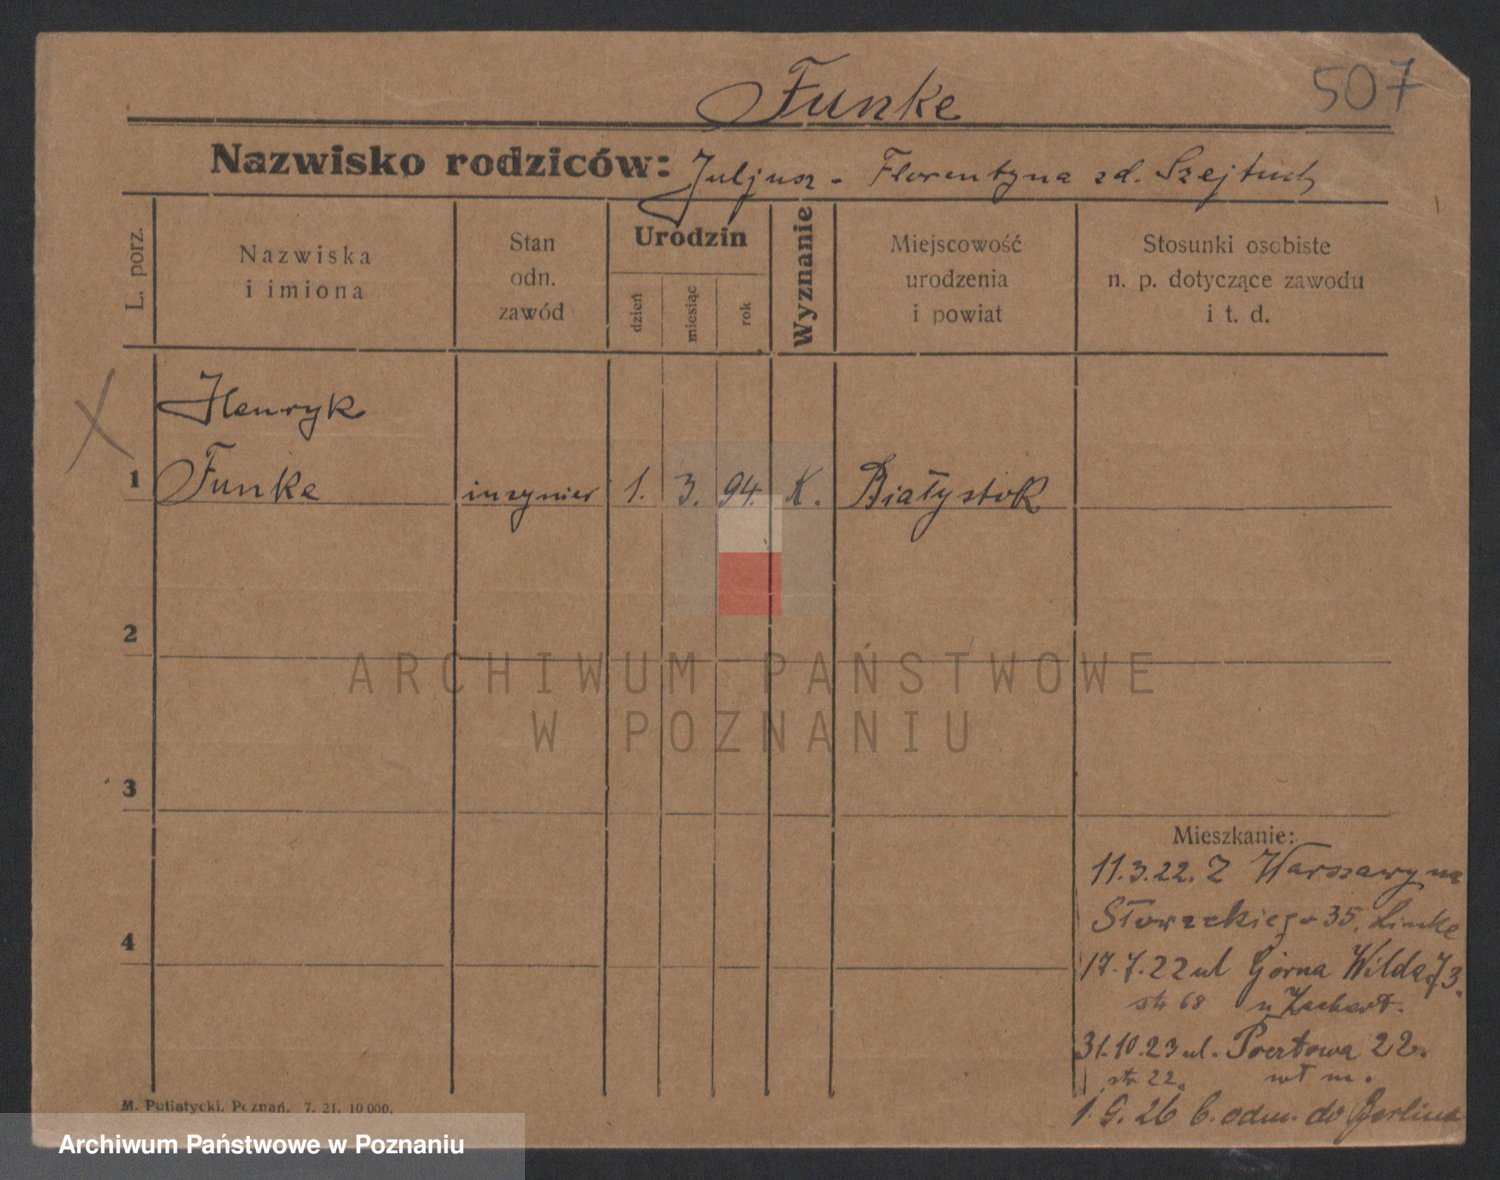 Funke
507
Nazwisko rodziców: Juljusz - Florentyna zd.
L. porz.
Nazwiska
i imiona
Stan
odn.
zawód
Urodzin
dzień
miesiąc
rok
Wyznanie
Miejscowość
urodzenia
i powiat
Stosunki osobiste
n. p. dotyczące zawodu
i t. d.
Henryk
1 Funke inżynier 1. 3. 94. K. Białystok
2
ARCHIWUM PAŃSTWOWE
W POZNANIU
3
Mieszkanie:
11.3.22. Z Warszawy na
35. Linke
4
17.7.22 ul Górna Wilda 73.
str 68 u
31.10.23 ul. Pocztowa 22.
str 22. wł m.
26 b. odm. do Berlina
M. Putiatycki, Poznań, 7. 21. 10 000.
Archiwum Państwowe w Poznaniu